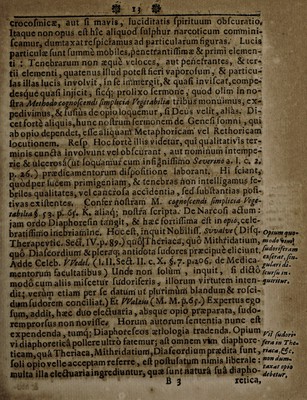 13
crocosnicæ, aut si mavis, luciditatis spirituum obscuratio.
Itaque non opus est hîc aliquod sulphur narcoticum commini-
scamur, dum ex atris piscamus ad particularum figuras. Lucis
particulæ sunt summè mobiles, penetrantissimæ & primi elemen-
ti: Tenebrarum non æquè veloces, aut penetrantes, & ter-
tii elementi, quatenus illud potest fieri vaporosum, & particu-
las illas lucis involvit, in se immergit, & quasi inviscat, compe-
desque quasi injicit, quod olim in no-
stra Methodo cognoscendi simplicia Vegetabilia tribus monuimus, ex-
pedivimus, & fusius de opio loquemur, si Deus velit, aliàs. Di-
cet fortè aliquis, hunc nostrum sermonem de Genesi somni, qui
ab opio dependet, esse aliquam Metaphoricam vel Rethoricam
locutionem. Resp. Hoc fortè illis videtur, qui qualitativis ter-
minis cuncta involvunt vel obscurant, aut nominum intempe-
rie & ulceros (ut loquamur cum insignissimo Severeno a. l. c. 2.
p. 26.) prædicamentorum dispositione laborant. Hi sciant,
quod per lucem primigeniam, & tenebras non intelligamus fe-
biles qualitates, vel cancrosa accidentia, sed substantias posi-
tivas existentes. Confer nostram M. cognoscendi simplicia Vege-
tabilia §. 53. p. 65. & alia; nostra scripta. De Narcosi actum,
jam ordo Diaphoresin tangit, & hæc fortissima est in opio, cele-
bratissimo inebriamine. Hoc est, inquit Nobiliss. Sylvius (Disq.
Therapevtic. Sect. IV. p. 89.) quod Theriaca, quò Mithridatium,
quò Diascordium & pleraq; antidota sudores præcipuè eliciunt.
Adde Celeb. Vidal. (l. II. Sect. II. c. X. §. 7. p. 406. de Medica-
mentorum facultatibus) Unde non solum, inquit, si dicto
modo cum aliis misceatur sudoriferis, illorum virtutem inten-
dit; verùm etiam per se datum ut plurimùm blandum & roſci-
dum sudorem conciliat.) Et Walæus (M. M. p. 65.) Expertus ego
sum, addit, hæc duo electuaria, absque opio præparata, sudo-
rem prorsus non movisse. Horum autorum sententia nunc est
expendenda, tumq; Diaphoreseos ætiologia tradenda. Opium
vi diaphoretica pollere ultrò fatemur; ast omnem vim diaphore-
ticam, quâ Theriaca, Mithridatium, Diascordium prædita sunt,
soli opio velle acceptam referre, est postulatum nimis liberale:
multa illa electuaria ingrediuntur, quæ sunt naturâ suâ diapho-
B 3 retica,
Opium quo-
modo vim
sudoriferam
exserat,